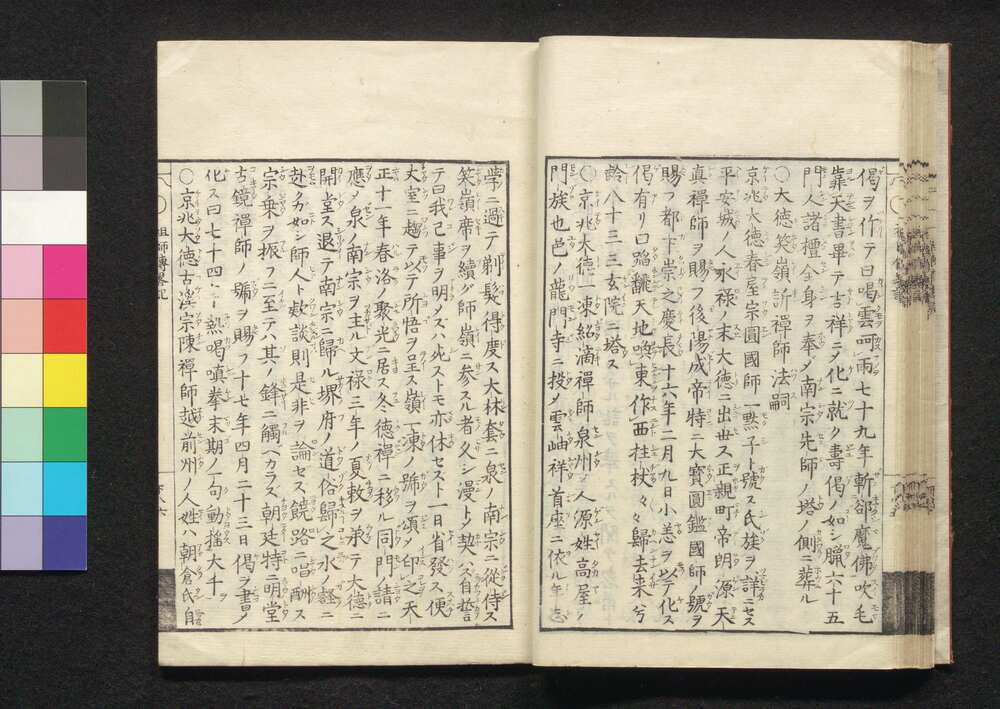 偈ヲ作テ曰喝雲呵雨七十九年斬郤魔佛吹毛
靠天書畢テ吉祥ニメ化ニ就ク壽偈ノ如シ臘六十五
門人諸檀全身ヲ奉メ南宗先師ノ塔ノ側ニ葬ル
○大德笑嶺訢禪師法嗣
京兆大德春屋宗園國師一黙子ト號ス氏族ヲ詳ニセス
平安城ノ人永禄ノ末大德ニ出世ス正親町帝朗源天
真禪師ヲ賜フ後陽成帝特ニ大寶圓鑑國師ノ號ヲ
賜フ都下崇之慶長十六年二月九日小恙ヲ以テ化ス
偈有リ曰踏飜天地喚東作西拄杖々々歸去来兮
齢八十三三玄院ニ塔ス
○京兆大德一凍紹滴禪師泉州ノ人源姓高屋ノ
門族也邑ノ龍門寺ニ投メ雲岫祥首座ニ依ル年志
學ニ過テ剃髪得度ス大林套ニ泉ノ南宗ニ從侍ス
笑嶺帝ヲ續グ師嶺ニ参スル者久シ漫トメ契ハズ自誓
テ曰我己事ヲ明メズハ死ストモ亦休セスト一日省發ス便
丈室ニ趨テ以テ所悟ヲ呈ス嶺一凍ノ號ヲ頌メ印之天
正十一年春洛ノ聚光ニ居ス冬德禪ニ移ル同門ノ請ニ
應メ泉ノ南宗ヲ主ル文禄三年ノ夏敕ヲ承テ大德ニ
開堂ス退テ南宗ニ歸ル堺府ノ道俗歸之水ノ壑ニ
赴カ如シ師人ト數談則是非ヲ論セス饒路ニ唱酬ス
宗乗ヲ振フニ至テハ其ノ鋒ニ觸ヘカラス朝廷特ニ明堂
古鏡禪師ノ號ヲ賜フ十七年四月二十三日偈ヲ書メ
化ス曰七十四年熱喝嗔拳末期ノ一句動揺大千ヲ
○京兆大德古溪宗陳禪師越前州ノ人姓ハ朝倉氏自
祖師傳畧記